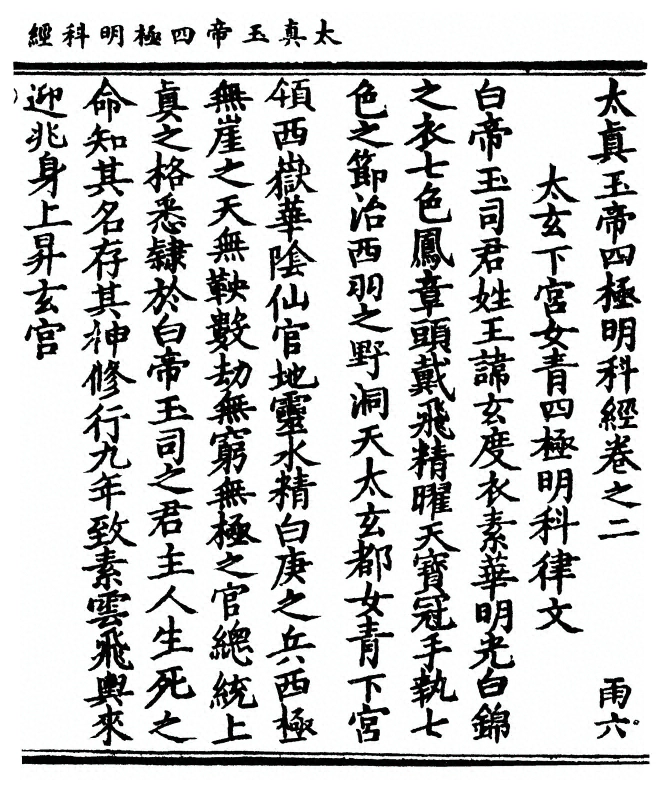 太真玉帝四極明科經
太眞玉帝四極明科經卷之二 雨六
太玄下宮女青四極明科律文
白帝玉司君姓王諱玄度衣素華明光白錦
之衣七色鳳章頭戴飛精曜天寶冠手執七
色之節治西羽之野洞天太玄都女青下宮
領西嶽華陰仙官地靈水精白庚之兵西極
無崖之天無鞅數劫無窮無極之官總統上
眞之格悉隸於白帝玉司之君主人生死之
命知其名存其神修行九年致素雲飛輿來
迎兆身上昇玄宮